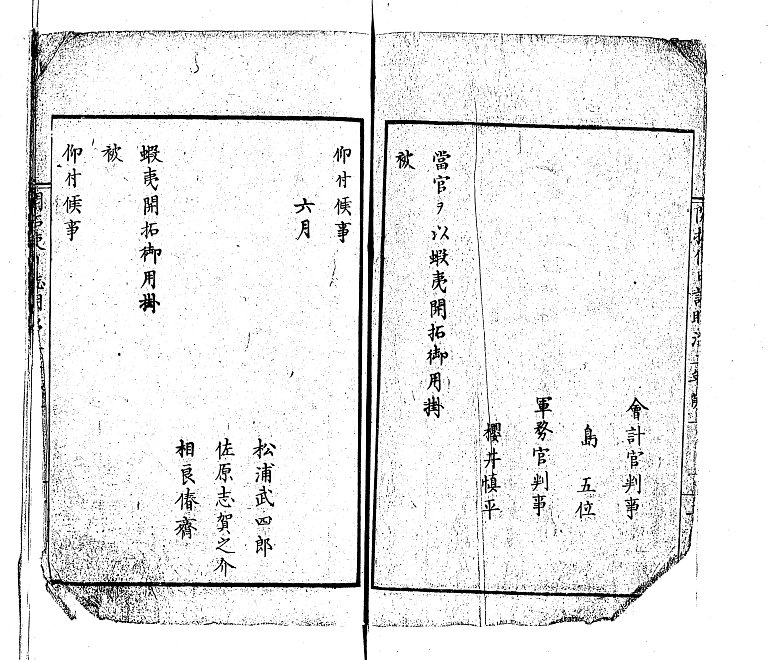 會計官判事
島五位
軍務官判事
櫻井慎平
當官ヲ以蝦夷開拓御用掛
被
仰付候事
六月
松浦武四郎
佐原志賀之介
相良偆齋
蝦夷開拓御用掛
被
仰付候事